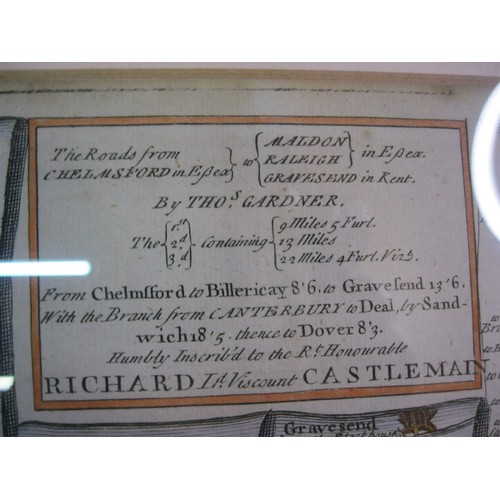 The Roads from
CHELMSFORD in Eßex
to
MALDON
RALEIGH
GRAVESEND
in Eßex.
in Kent.
By THOS. GARDNER.
The
1.st
2.d
3.d
Containing
9 Miles 5 Furl.
13 Miles
22 Miles 4 Furl. Vizt.
From Chelmſford to Billericay 8'6. to Graveſend 13'6.
With the Branch from CANTERBURY to Deal, by Sand-
wich 18'5. thence to Dover 8'3.
Humbly Inscrib'd to the Rt. Honourable
RICHARD Ld. Viscount CASTLEMAIN
Gravesend